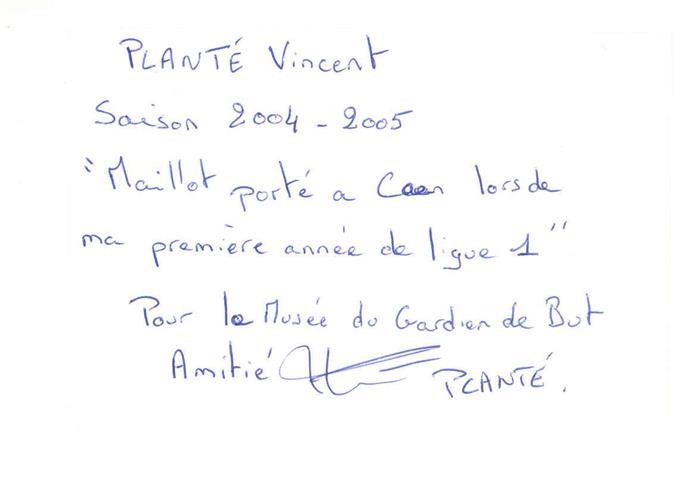 PLANTÉ Vincent
Saison 2004 - 2005
"Maillot porté a Caen lors de
ma première année de ligue 1"
Pour le Musée du Gardien de But
Amitié PLANTÉ.